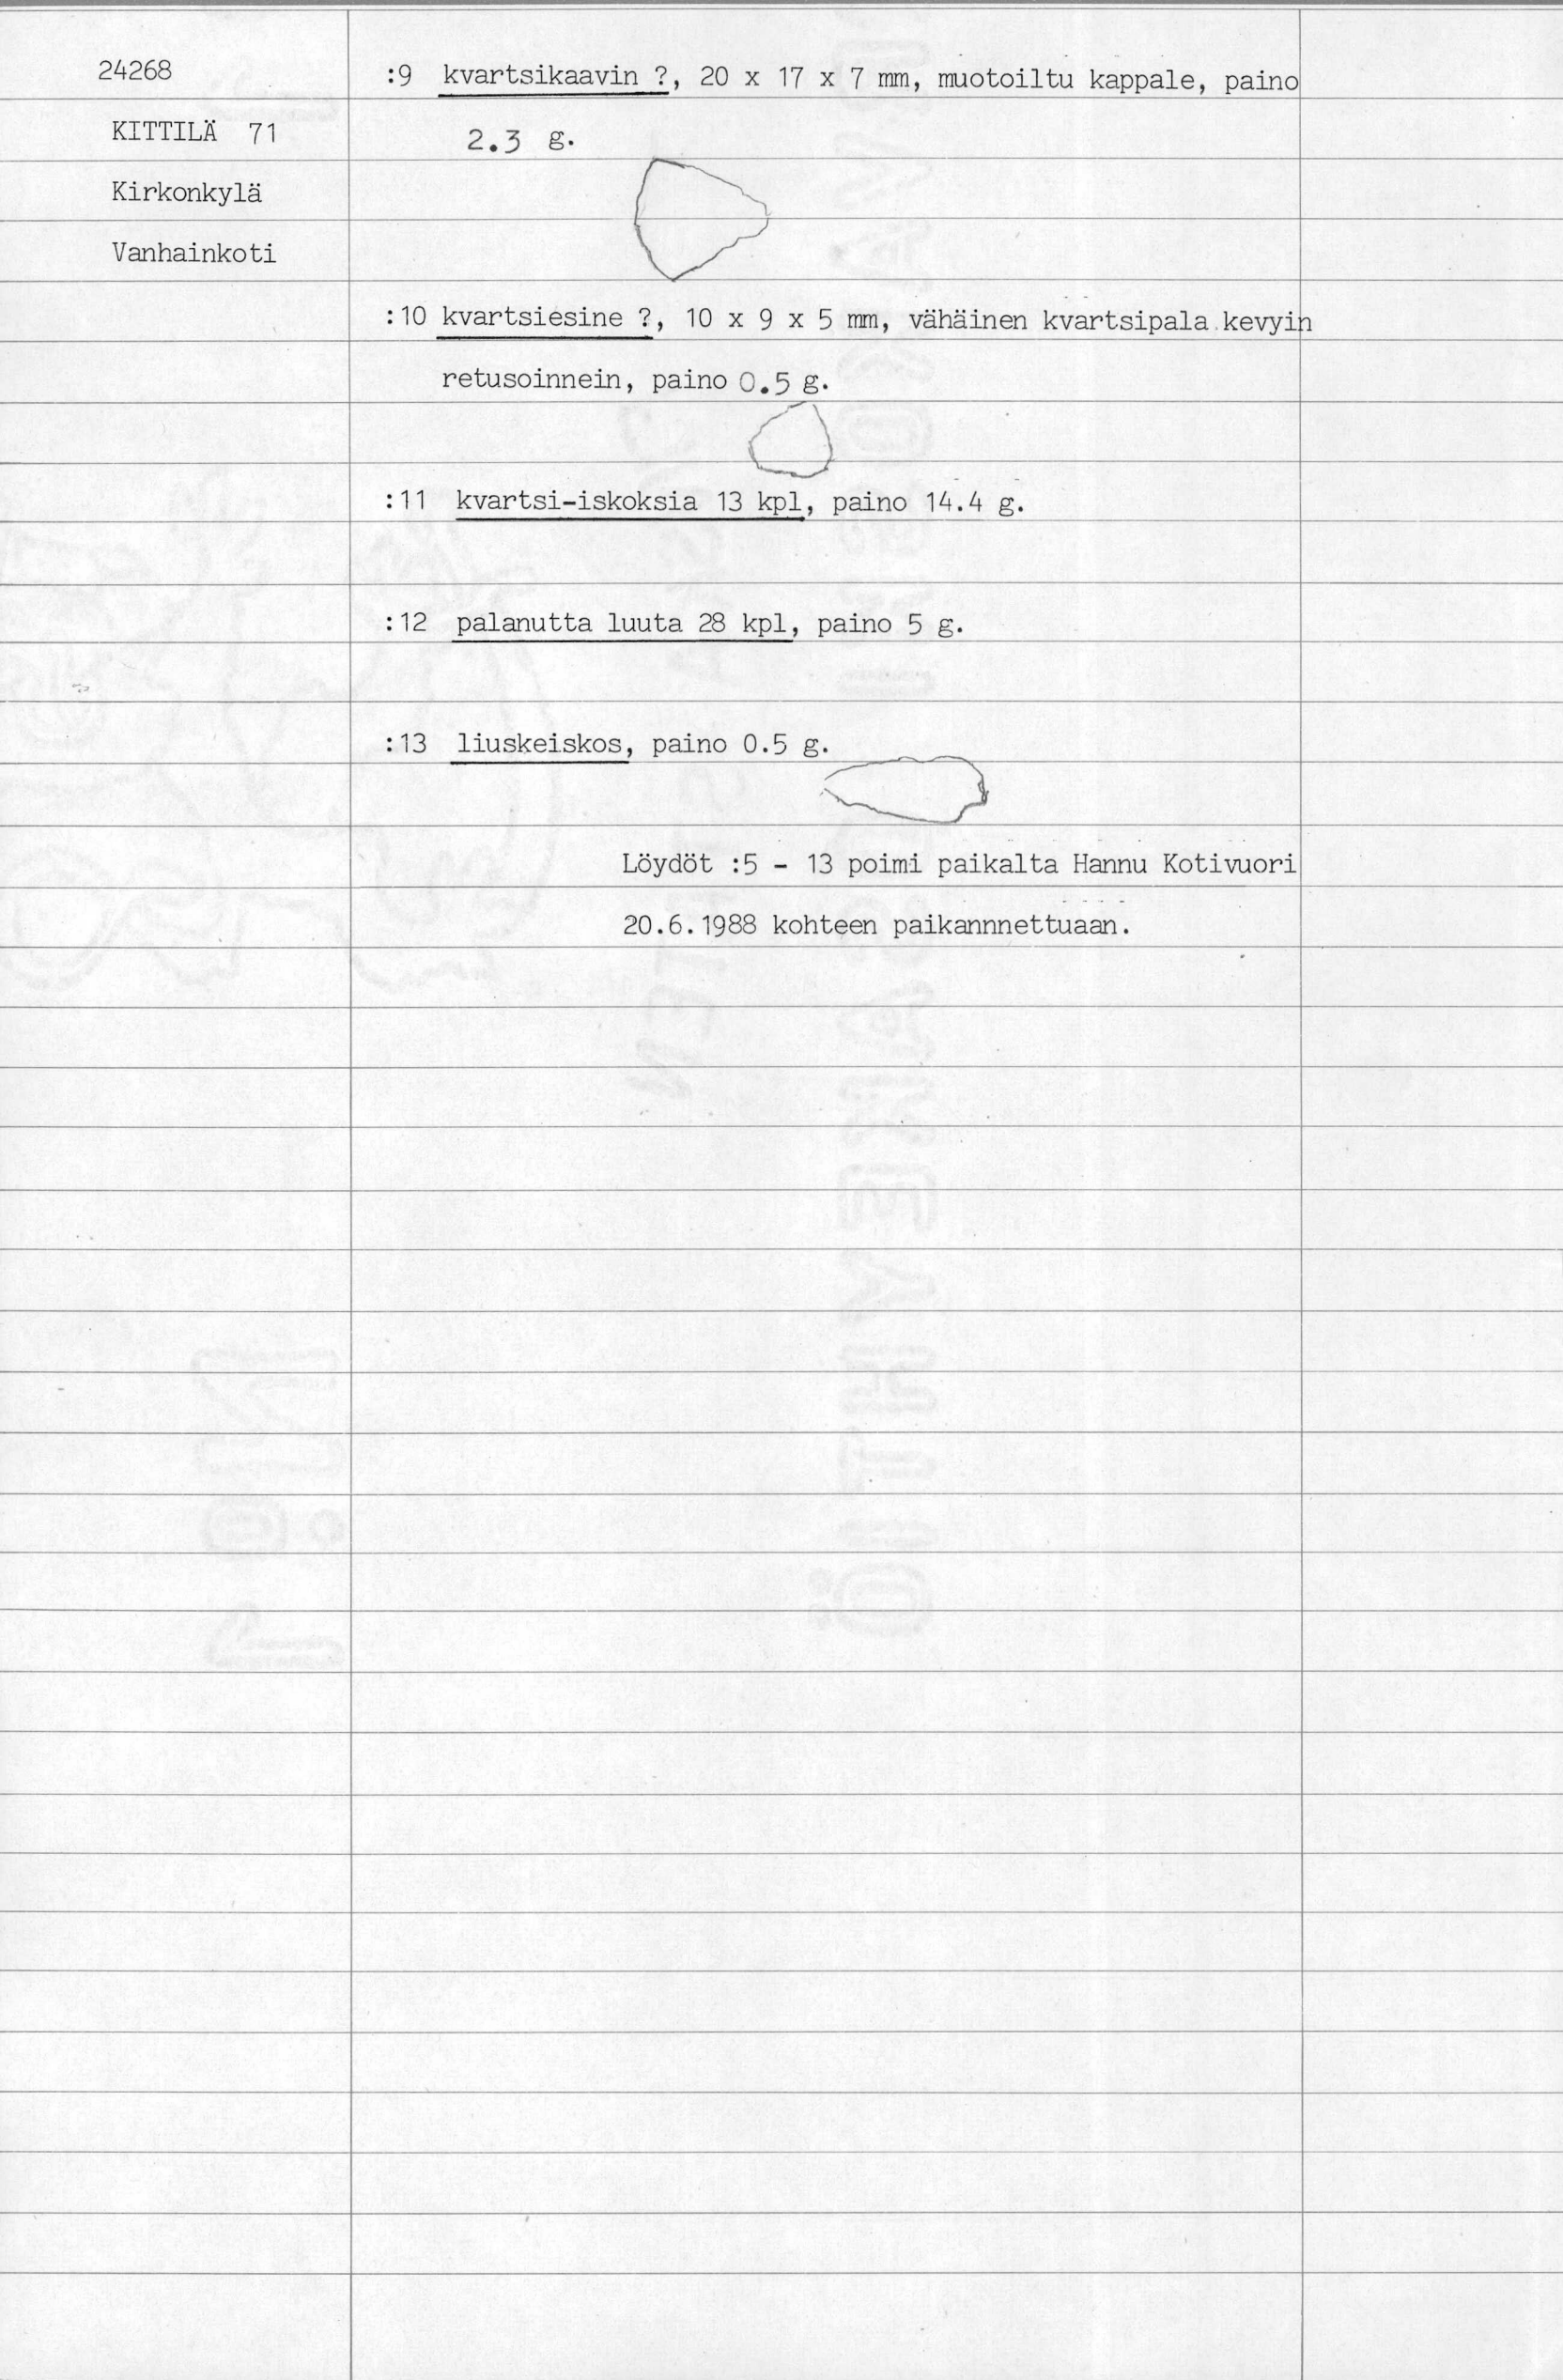 24268
KITTILÄ 71
Kirkonkylä
Vanhainkoti
:9 kvartsikaavin ?, 20 x 17 x 7 mm, muotoiltu kappale, paino
2.3 g.
:10 kvartsiesine ?, 10 x 9 x 5 mm, vähäinen kvartsipala kevyin
retusoinnein, paino 0.5 g.
:11 kvartsi-iskoksia 13 kpl, paino 14.4 g.
:12 palanutta luuta 28 kpl, paino 5 g.
:13 liuskeiskos, paino 0.5 g.
Löydöt :5 - 13 poimi paikalta Hannu Kotivuori
20.6.1988 kohteen paikannnettuaan.